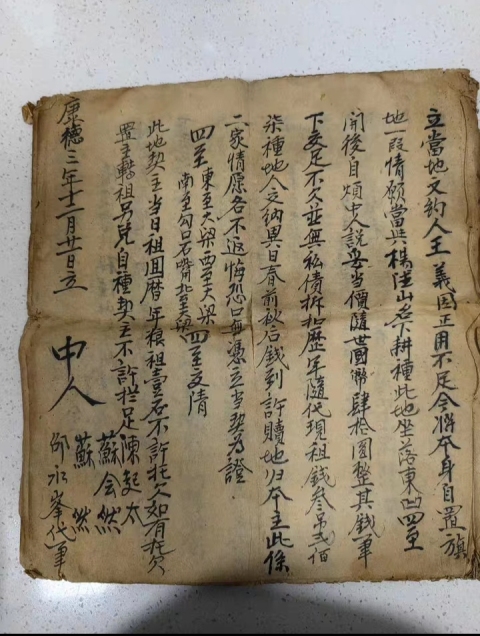 立當地文約人王義因正用不足今將本身自置旗
地一段情願當與楊陞山名下耕種此地坐落東凹四至
開後自煩中人說妥當價隨世國幣肆拾圓整其錢筆
下交足不欠並無私債折扣歷年隨代現租錢叁吊貳佰
柒種地人交納異日春前秋后錢到許贖地归本主此係
二家情愿各不返悔恐口無憑立當契為證
四至 東至大梁西至大梁 南至勾口石嘴北至大梁 四至交清
此地契主當日租回曆年粮租壹石不許拖欠如有拖欠
置主轉祖另兌自種契主不許拦足
中人 陳起太
蘇会然
蘇然
邱永峯代筆
康德三年十二月廿日立